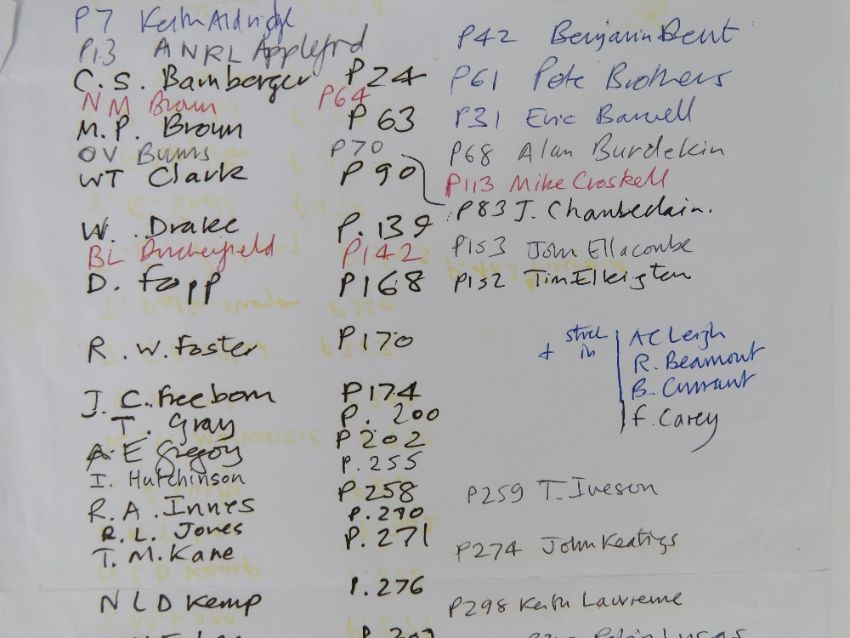 P7 Keith Aldridge
P13 ANRL Appleford
C.S. Bamberger P24
NM Brown P64
M.P. Brown P63
OV Burns P70
WT Clark P90
W. Drake P.139
BL Duckenfield P142
D. Fopp P168
R.W. Foster P170
J.C. Freeborn P174
T. Gray P.200
A E Gregory P202
I. Hutchinson P.255
R.A. Innes P258
R.L. Jones P.270
T.M. Kane P.271
N L D Kemp P.276
P42 Benjamin Bent
P61 Pete Brothers
P31 Eric Barwell
P68 Alan Burdekin
P113 Mike Croskell
P83 J. Chamberlain.
P153 John Ellacombe
P152 Tim Elkington
+ stuck in
AC Leigh
R. Beamont
B. Currant
F. Carey
P259 T. Iveson
P274 John Keatings
P298 Keith Lawrence